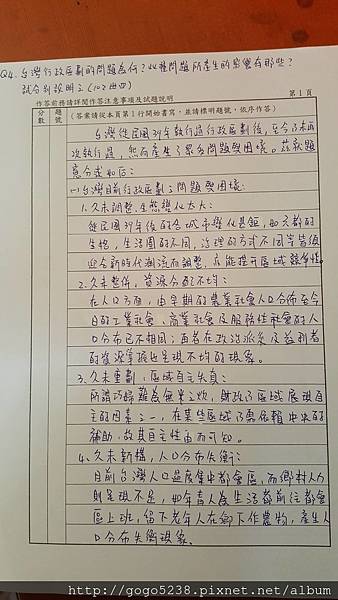 Q4. 台灣行政區劃的問題為何？此種問題所產生的影響有那些？
試分別說明之（102四）
作答前務請詳閱作答注意事項及試題說明 第1頁
分數 題號 （答案請從本頁第1行開始書寫，並請標明題號，依序作答）
台灣從民國39年執行過行政區劃後，至今乃未再
次執行過，然而產生了眾多問題與困境。茲就題
意分述如后：
(一)台灣目前行政區劃之問題與困境：
1.久未調整，生態變化太大：
從民國39年後的各城市變化甚鉅，如交都的
生態，生活圈的不同，治理的方式不同等皆須
迎合新時代潮流而調整，方能提升區域競爭性。
2.久未整併，資源分配不均：
在人口方面，由早期的農業社會人口分佈至今
日的工業社會、商業社會及服務性社會的人
口分布已不相同；再者在政治派系及益利者
的資源掌握也呈現不均的現象。
3.久未重劃，區域自主失真：
所謂巧婦難為無米之炊，財政乃區域展現自
主的因素之一，在某些區域乃需依賴中央的
補助，故其自主性由而可知。
4.久未新構，人口分布失衡：
目前台灣人口過度集中都會區，而鄉村人力
則呈現不足，如年青人為生活都前往都會
區上班，留下老年人在鄉下作農物，產生人
口分布失衡現象。
http://gogo5238.pixnet.net/album